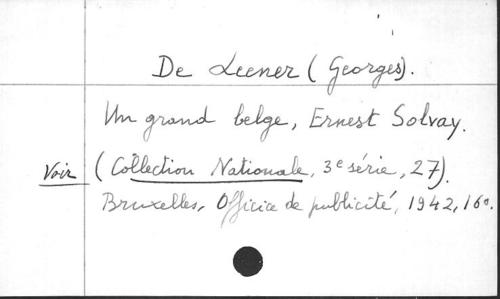 De Leener (Georges).
Un grand belge, Ernest Solvay.
Voir (Collection Nationale, 3e série, 27).
Bruxelles, Office de publicité, 1942, 16o.